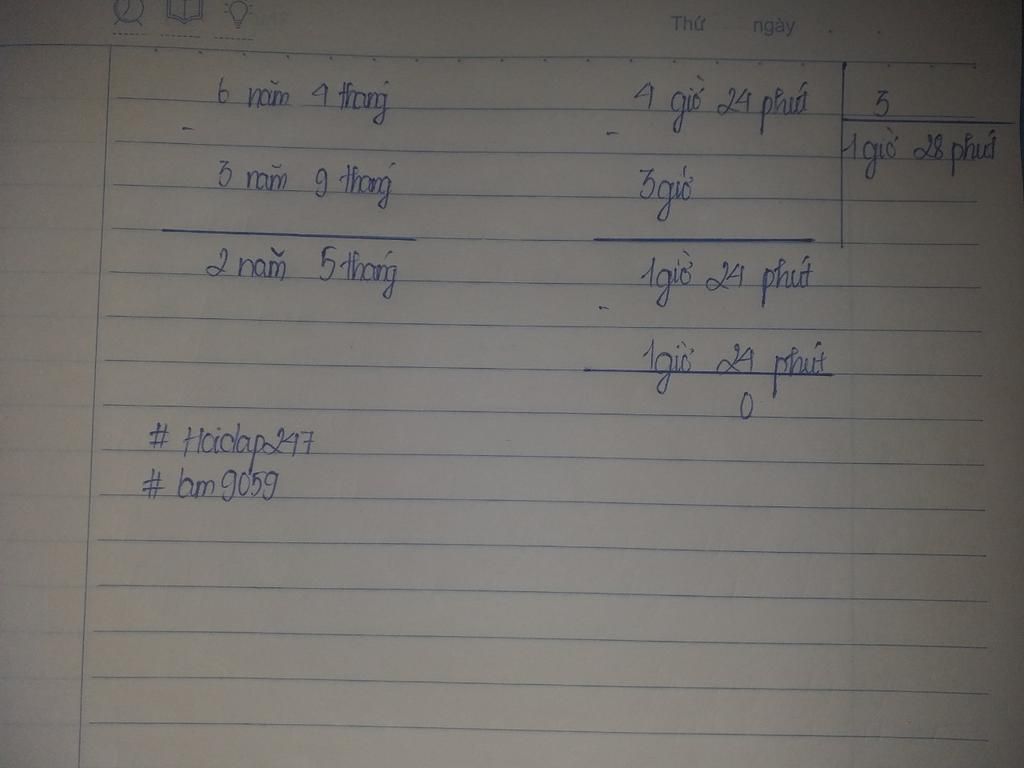 Thứ ngày
6 năm 4 tháng
-
3 năm 9 tháng
2 năm 5 tháng
4 giờ 24 phút 3
- 1 giờ 28 phút
3 giờ
1 giờ 24 phút
-
1 giờ 24 phút
0
# Hoidap247
# bm9059